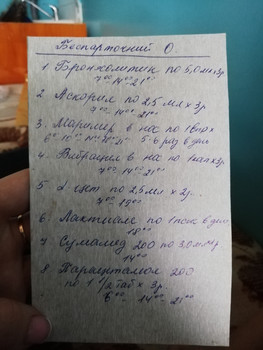 Беспорточний О.
1 Бронхолитик по 5,0 мл х 3р
7⁰⁰ 14⁰⁰ 21⁰⁰
2 Аскорил по 2,5 мл х 3р
7⁰⁰ 14⁰⁰ 21⁰⁰
3. Маример в нос по 1 впох
5-6 раз в день
4. в нос по 1 кап х 3р
7⁰⁰ 14⁰⁰ 21⁰⁰
5 L цет по 2,5 мл х 2р.
7⁰⁰ 19⁰⁰
6. Лактиале по 1 пак в день
18⁰⁰
7 Сумамед 200 по 3,0 мл
14⁰⁰
8 Парацетамол 200
по 1 1/2 таб х 3р
6⁰⁰ 14⁰⁰ 21⁰⁰